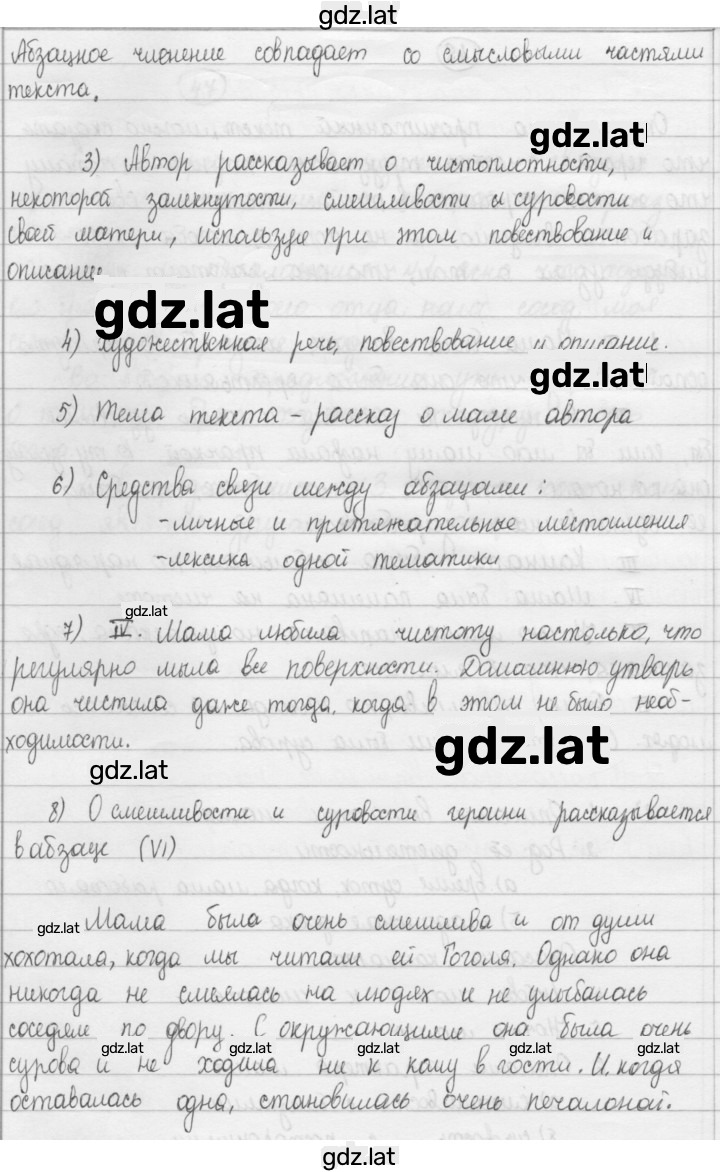 gdz.lat
Абзацное членение совпадает со смысловыми частями
текста.
gdz.lat
3) Автор рассказывает о чистоплотности,
некоторой замкнутости, смешливости и суровости
своей матери, используя при этом повествование и
описание
gdz.lat
4) Художественная речь, повествование и описание.
gdz.lat
5) Тема текста – рассказ о маме автора
6) Средства связи между абзацами:
-личные и притяжательные местоимения
-лексика одной тематики
gdz.lat
7) IV. Мама любила чистоту настолько, что
регулярно мыла все поверхности. Домашнюю утварь
она чистила даже тогда, когда в этом не было необ-
ходимости.
gdz.lat
gdz.lat
8) О смешливости и суровости героини рассказывается
в абзаце (VI)
gdz.lat Мама была очень смешлива и от души
хохотала, когда мы читали ей Гоголя. Однако она
никогда не смеялась на людях и не улыбалась
соседям по двору. С окружающими она была очень
gdz.lat gdz.lat gdz.lat gdz.lat
сурова и не ходила ни к кому в гости. И, когда
оставалась одна, становилась очень печалоной.
gdz.lat